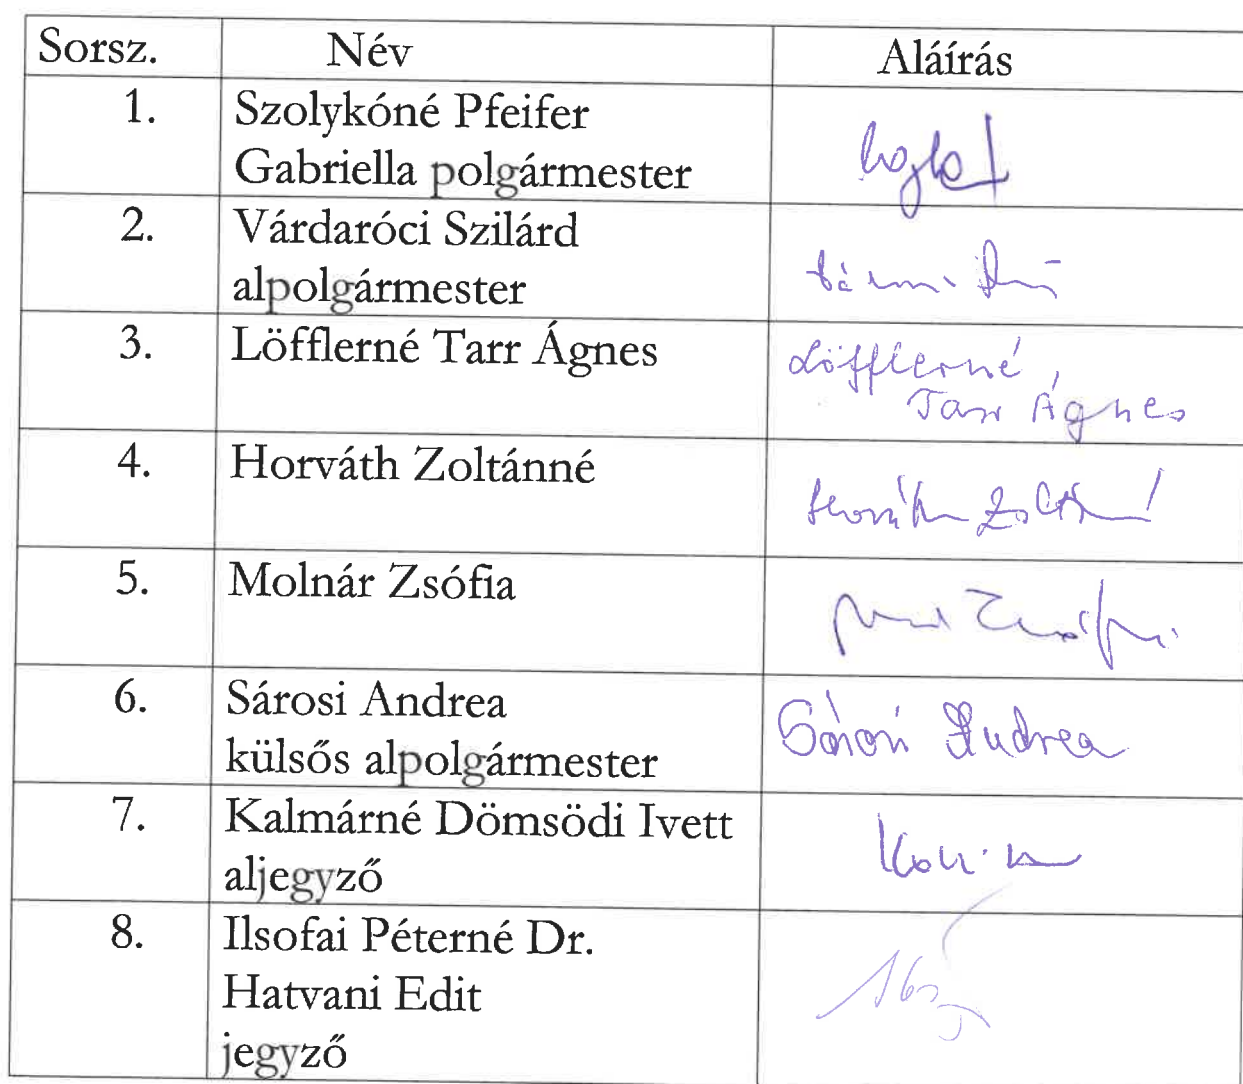 Sorsz. Név Aláírás
1. Szolykóné Pfeifer
Gabriella polgármester
2. Várdaróci Szilárd
alpolgármester
3. Löfflerné Tarr Ágnes Löfflerné
Tarr Ágnes
4. Horváth Zoltánné Horváth Zoltánné
5. Molnár Zsófia
6. Sárosi Andrea Sárosi Andrea
külsős alpolgármester
7. Kalmárné Dömsödi Ivett
aljegyző
8. Ilsofai Péterné Dr.
Hatvani Edit
jegyző